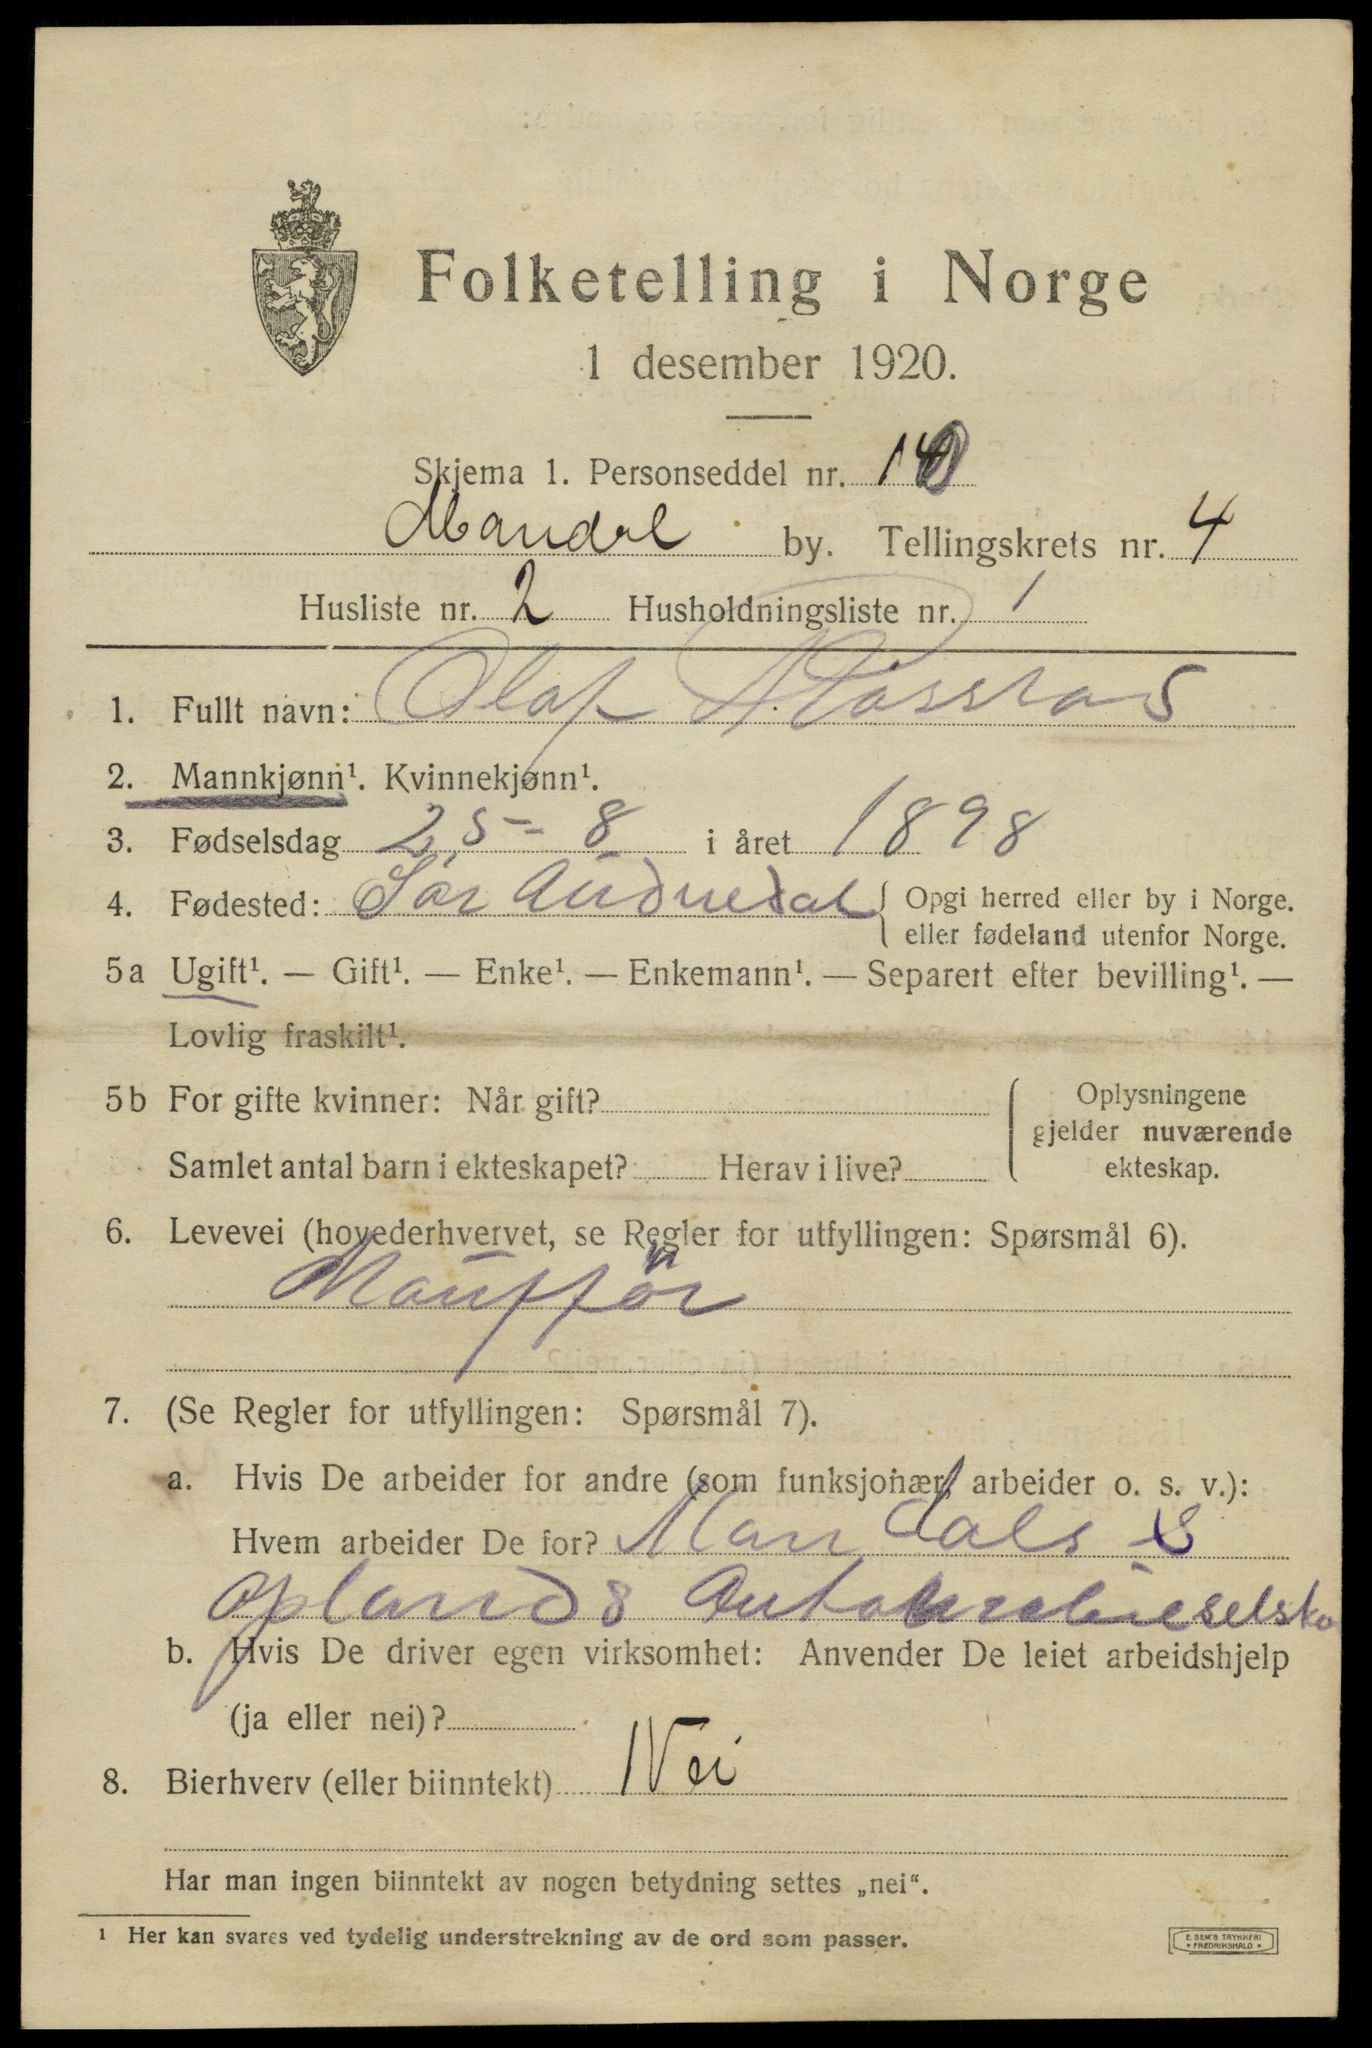 Folketelling i Norge
1 desember 1920.
Skjema 1. Personseddel nr. 14
Mandal by. Tellingskrets nr. 4
Husliste nr. 2 Husholdningsliste nr. 1
1. Fullt navn: Olaf
2. Mannkjønn¹. Kvinnekjønn¹.
3. Fødselsdag 25-8 i året 1898
4. Fødested: Sør Audnedal { Opgi herred eller by i Norge.
eller fødeland utenfor Norge.
5a Ugift¹. — Gift¹. — Enke¹. — Enkemann¹. — Separert efter bevilling¹. —
Lovlig fraskilt¹.
5b For gifte kvinner: Når gift?
Samlet antal barn i ekteskapet? Herav i live?
Oplysningene
gjelder nuværende
ekteskap.
6. Levevei (hovederhvervet, se Regler for utfyllingen: Spørsmål 6).
7. (Se Regler for utfyllingen: Spørsmål 7).
a. Hvis De arbeider for andre (som funksjonær, arbeider o. s. v.):
Hvem arbeider De for? Mandals &
Oplands
b. Hvis De driver egen virksomhet: Anvender De leiet arbeidshjelp
(ja eller nei)?
8. Bierhverv (eller biinntekt) Nei
Har man ingen biinntekt av nogen betydning settes „nei“.
¹ Her kan svares ved tydelig understrekning av de ord som passer.
E. SEM'S TRYKKERI
• FREDRIKSHALD •